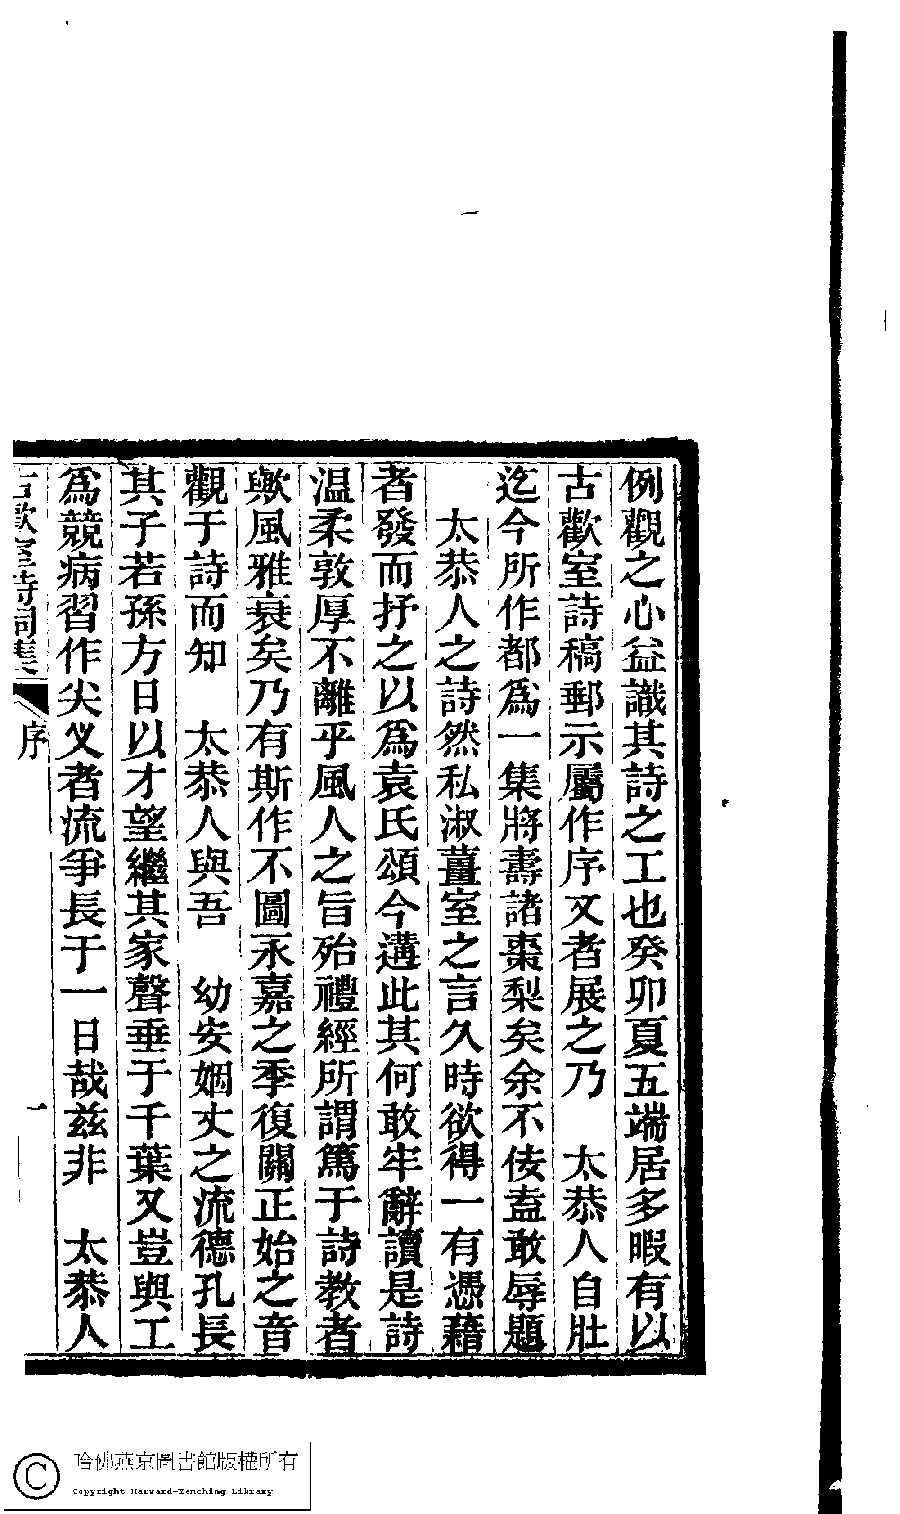 例觀之心益識其詩之工也癸卯夏五端居多暇有以
古歡室詩稿郵示屬作序又者展之乃　太恭人自壯
迄今所作都爲一集將壽諸棗梨矣余不佞盍敢辱題
　太恭人之詩然私淑薑室之言久時欲得一有憑藉
者發而抒之以爲袁氏頌今遘此其何敢牢辭讀是詩
温柔敦厚不離乎風人之旨殆禮經所謂篤于詩教者
歟風雅衰矣乃有斯作不圖永嘉之季復闢正始之音
觀于詩而知　太恭人與吾　幼安姻丈之流德孔長
其子若孫方日以才望繼其家聲垂于千葉又豈與工
爲競病習作尖叉者流爭長于一日哉兹非　太恭人
古歡室詩詞集　序　一
哈佛燕京圖書館版權所有
Copyright Harvard-Yenching Library